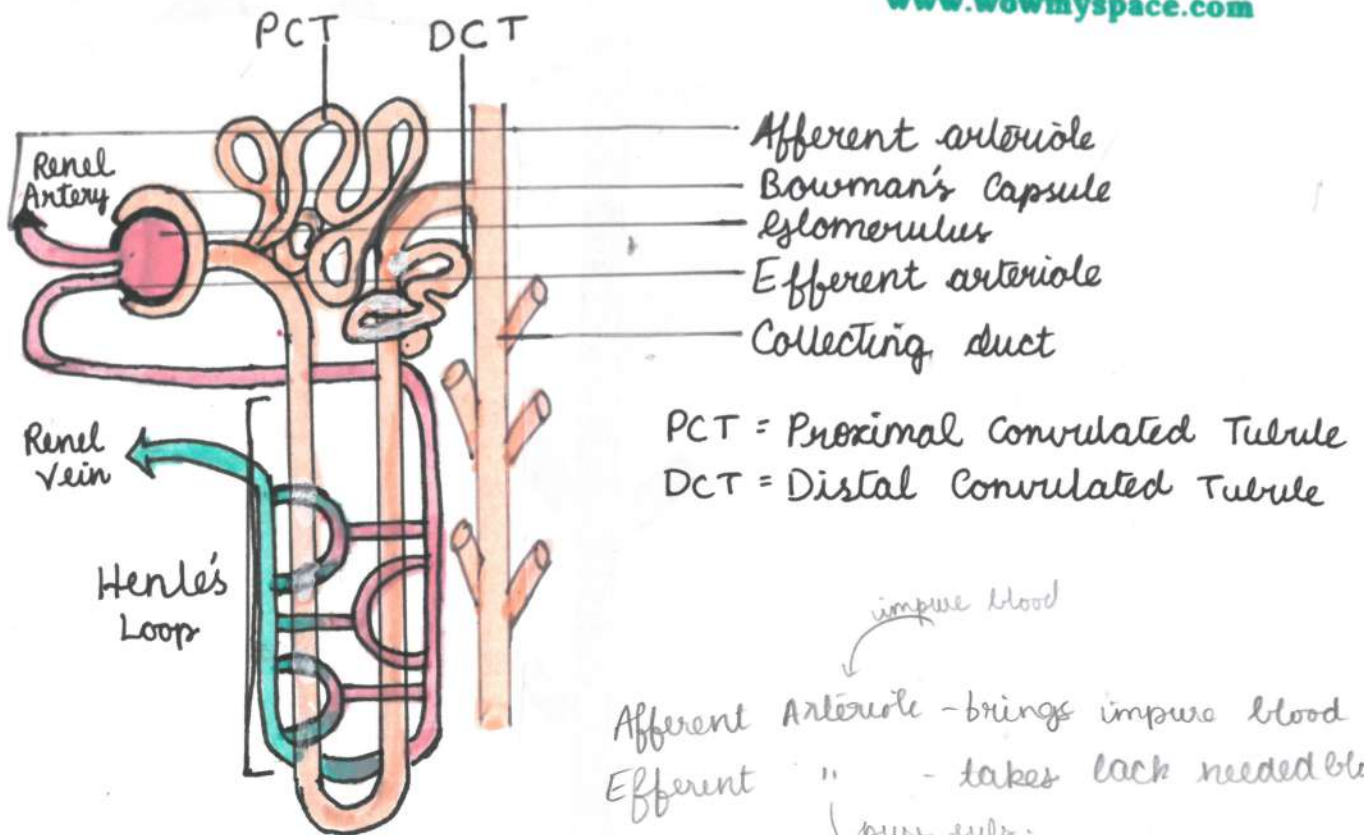 www.wowmyspace.com
PCT
DCT
Renel
Artery
Afferent arteriole
Bowman's Capsule
Glomerulus
Efferent arteriole
Collecting duct
PCT = Proximal Convulated Tubule
DCT = Distal Convulated Tubule
Renel
Vein
Henle's
Loop
impure blood
Afferent Arteriole - brings impure blood
Efferent " - takes back needed